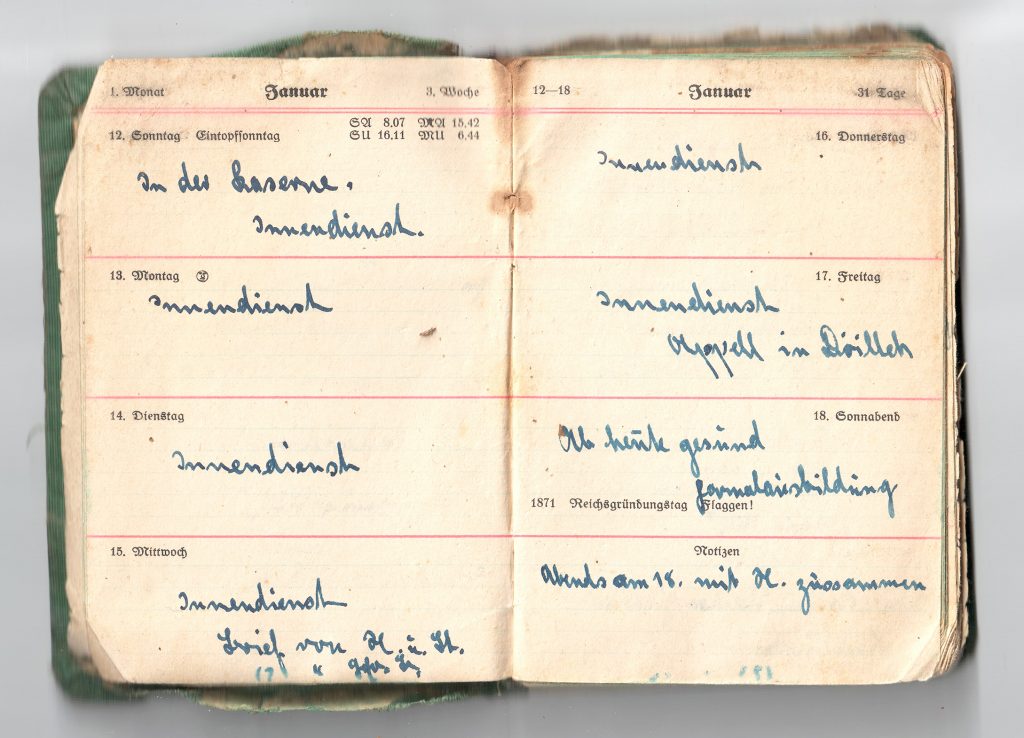 1. Monat Januar 3. Woche
12. Sonntag Eintopfsonntag SA 8,07 MA 15,42
SU 16,11 MU 6,44
In der Kaserne.
Innendienst.
13. Montag
Innendienst
14. Dienstag
Innendienst
15. Mittwoch
Innendienst
Brief von H. u. St.
"
12—18 Januar 31 Tage
16. Donnerstag
Innendienst
17. Freitag
Innendienst
Appell in Drillch
18. Sonnabend
Ab heute gesund
Formalausbildung
1871 Reichsgründungstag Flaggen!
Notizen
Abends am 18. mit H. zusammen